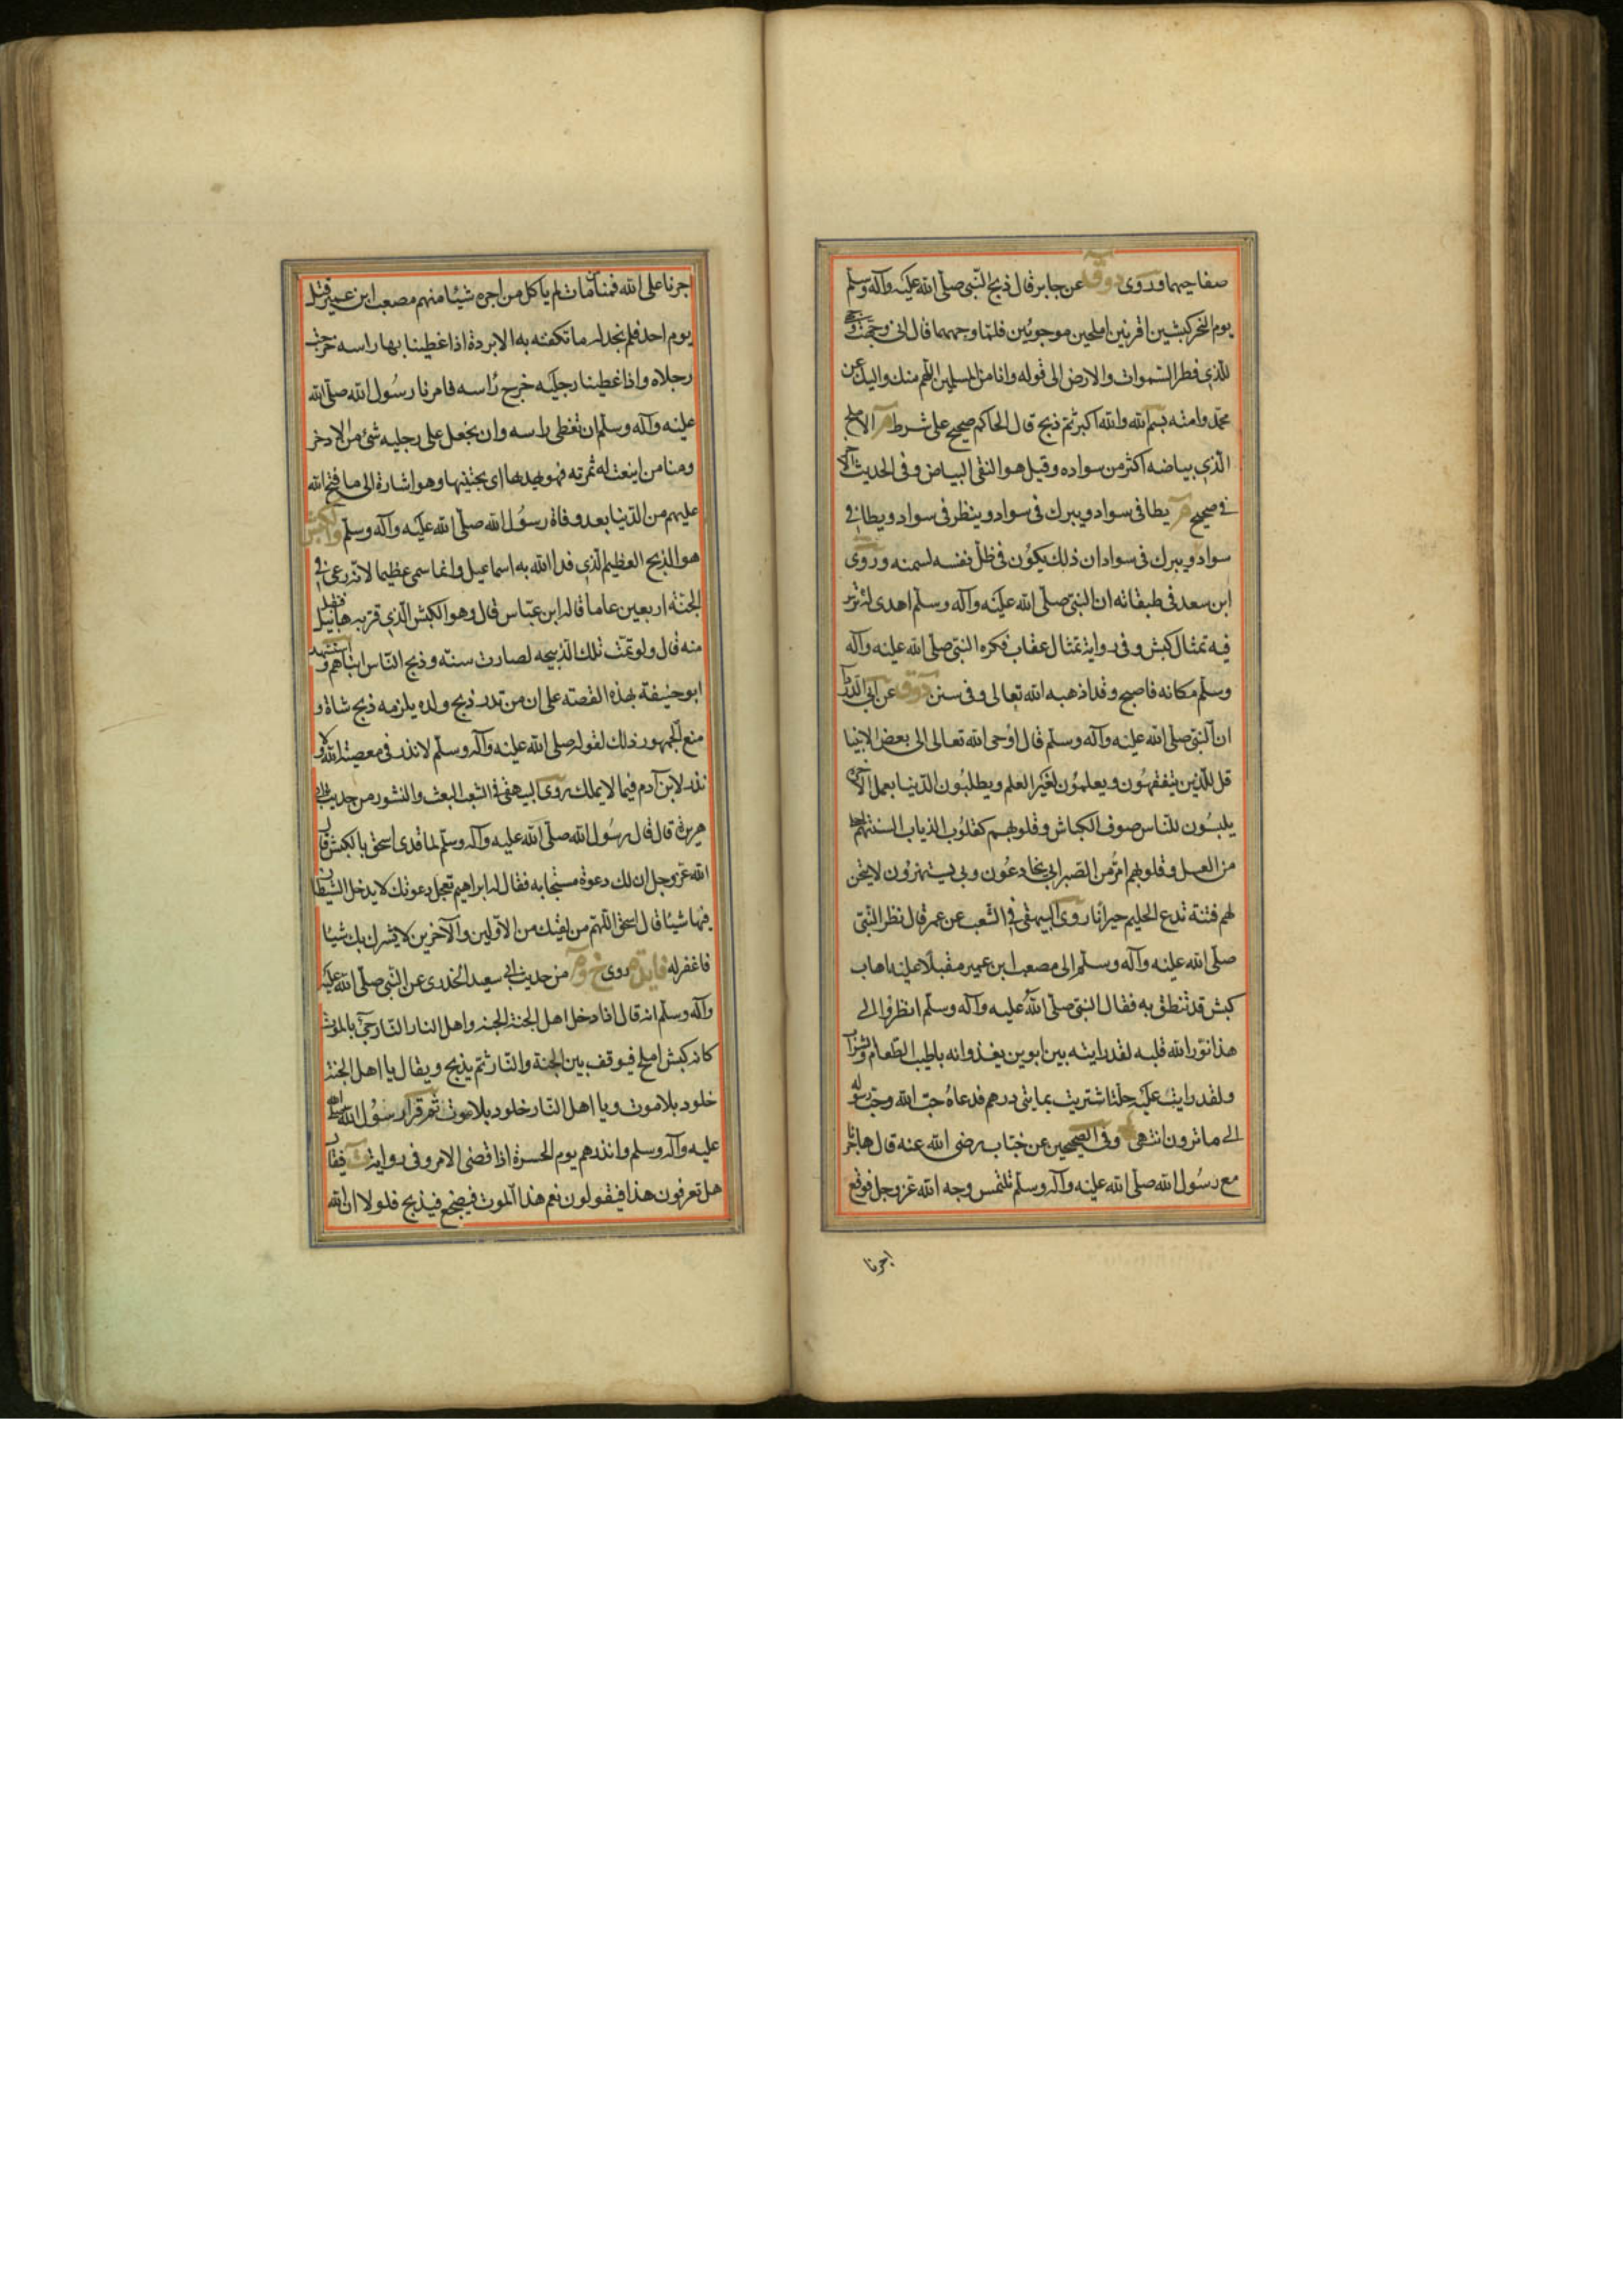 صفاحهما وروى د و ق عن جابر قال ذبح النبى صلى الله عليه وآله وسلم
يوم النحر كبشين اقرنين املحين موجوئين فلما وجههما قال انى وجهت وجهى
للذى فطر السموات والارض الى قوله وانا من المسلمين اللهم منك واليك عن
محمد وامته بسم الله والله اكبر ثم ذبح قال الحاكم صحيح على شرط م الاملح
الذى بياضه اكثر من سواده وقيل هو النقى البياض وفى الحديث
فى صحيح م يطا فى سواد ويبرك فى سواد وينظر فى سواد ويطا فى
سواد ويبرك فى سواد ان ذلك يكون فى ظل نفسه لسمنه وروى
ابن سعد فى طبقاته ان النبى صلى الله عليه وآله وسلم اهدى له ترس
فيه تمثال كبش وفى رواية تمثال عقاب فكره النبى صلى الله عليه وآله
وسلم مكانه فاصبح وقد اذهبه الله تعالى وفى سنن د و ق عن ابى الدردا
ان النبى صلى الله عليه وآله وسلم قال اوحى الله تعالى الى بعض الانبيا
قل للذين يتفقهون ويعلمون لغير العلم ويطلبون الدنيا بعمل الآخرة
يلبسون للناس صوف الكباش وقلوبهم كقلوب الذياب السنتهم احلى
من العسل وقلوبهم امر من الصبر ابى يخادعون وبى يستهزون لاتيحن
لهم فتنة تدع الحليم حيرانا روى البيهقى فى الشعب عن عمر قال نظر النبى
صلى الله عليه وآله وسلم الى مصعب ابن عمير مقبلا عليه اهاب
كبش قد تنطق به فقال النبى صلى الله عليه وآله وسلم انظروا الى
هذا نور الله قلبه لقد رايته بين ابوين يغذوانه باطيب الطعام والشراب
ولقد رايت عليه حلة اشتريت بمايتى درهم فدعاه حب الله وحب رسوله
الى ما ترون انتهى وفى الصحيحين عن خباب رضى الله عنه قال هاجرنا
مع رسول الله صلى الله عليه وآله وسلم نلتمس وجه الله عز وجل فوقع
اجرنا
اجرنا على الله فمنا من مات لم ياكل من اجره شيئا منهم مصعب ابن عمير قتل
يوم احد فلم نجد له ما تكفنه به الا بردة اذا غطينا بها راسه خرجت
رجلاه واذا غطينا رجليه خرج راسه فامرنا رسول الله صلى الله
عليه وآله وسلم ان نغطى راسه وان نجعل على رجليه شئ من الاذخر
ومنا من اينعت له ثمرته فهو يهدبها اى يجتنيها وهو اشارة الى ما فتح الله
عليهم من الدنيا بعد وفاة رسول الله صلى الله عليه وآله وسلم والكبش
هو الذبح العظيم الذى فدا الله به اسماعيل وانما سمى عظيما لانه رعى فى
الجنة اربعين عاما قاله ابن عباس قال وهو الكبش الذى قربه هابيل فتقبل
منه قال ولو تمت تلك الذبيحه لصارت سنة وذبح الناس ابناهم واستشهد
ابو حنيفة بهذه القصة على ان من نذر ذبح ولده يلزمه ذبح شاة و
منع الجمهور ذلك لقوله صلى الله عليه وآله وسلم لا نذر فى معصية الله ولا
نذر لابن آدم فيما لا يملك روى البيهقى فى الشعب البعث والنشور من حديث ابى
هريرة قال قال رسول الله صلى الله عليه وآله وسلم لما فدى اسحق بالكبش قال
الله عز وجل ان لك دعوة مستجابه فقال له ابراهيم تعجل دعوتك لا يدخل الشيطان
فيها شيئا قال اسحق اللهم من لقيك من الاولين والآخرين لا يشرك بك شيئا
فاغفر له فايدة روى خ و م من حديث ابى سعيد الخدرى عن النبى صلى الله عليه
وآله وسلم انه قال اذا دخل اهل الجنة الجنه واهل النار النار جئ بالموت
كانه كبش املح فيوقف بين الجنة والنار ثم يذبح ويقال يا اهل الجنة
خلود بلا موت ويا اهل النار خلود بلا موت ثم قرا رسول الله صلى الله
عليه وآله وسلم وانذرهم يوم الحسرة اذ اقضى الامر وفى رواية فيقال
هل تعرفون هذا فيقولون نعم هذا الموت فيضجع فيذبح فلولا ان الله